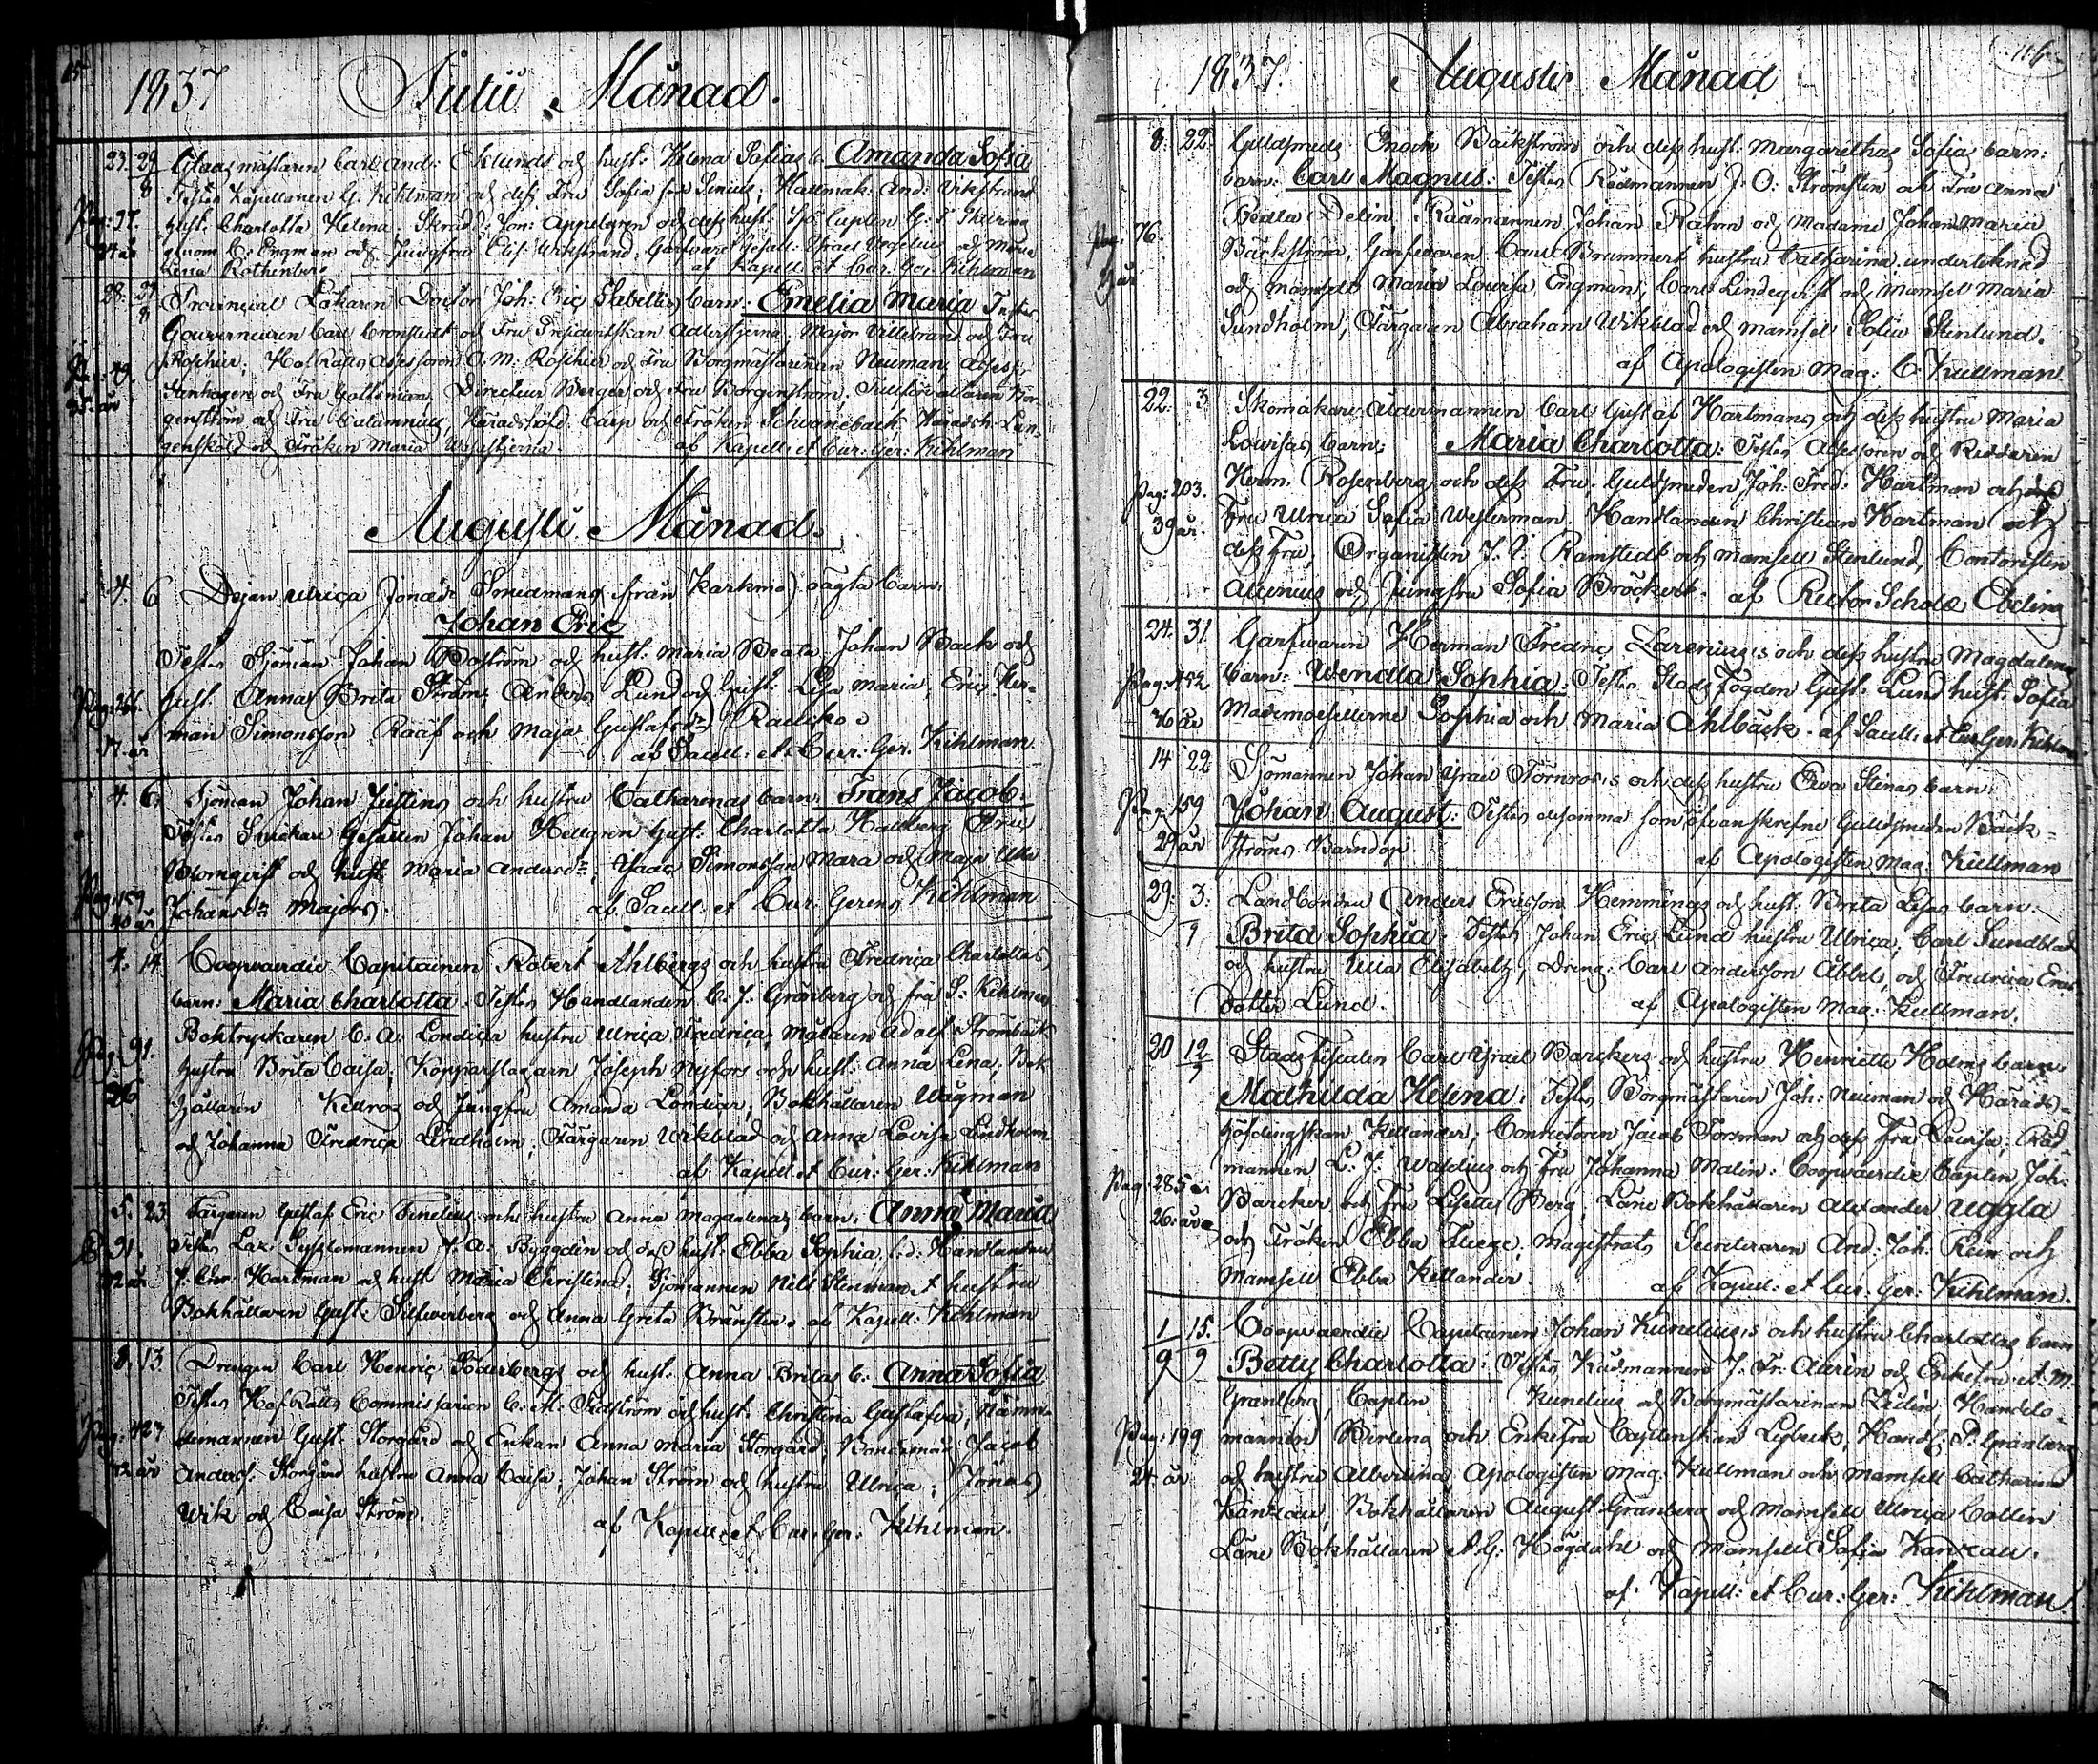 15
1837 Julii Månad.
23. 29/8 Glas mästaren Carl And: Eklunds och hust: Helena Sofias b. Amanda Sofia
Testes Kapellanen G. Kihlman och dess Fru Sofia född Senius; Hattmak: And: Wikstrand
Pag: 37. hust. Charlotta Helena, Skrädd: Jon: Appelgren och dess hust.
34 år genom C: Engman och Jungfru Elis: Wikstrand, Garfvare Gesäll:
Lena Rothenberg af Kapell: et Cur: Ger: Kihlman
28: 29/8 Provincial Läkaren Doctor Joh: Eric Sabellis barn: Emelia Maria Testes
Gouverneuren Carl Cronstedt och Fru Presidentskan Adlerstjerna, Major Willebrand och Fru
Roschier; Hof Rätts Assessoren A. M. Roschier och Fru Borgmästarinnan Neuman; Assess:
Pag: 49. och Fru Gottsman, Directeur Berger och Fru Borgenström,
35. år genström och Fru Calamnius, Häradshöfd. Carp och Fröken Schvanebach Häradsh: Lan-
genskold och Fröken Maria af Kapell: et Cur: Ger: Kihlman
Augusti Månad.
4. 6 Pejan Ulrica Jonaed: Smedmans (från Karkmo) oägta barn.
Johan Eric
Testes Sjöman Johan Boström och hust: Maria Beata, Johan Back och
Pag: 266. hust. Anna Brita Ström; Anders Lund och hust: Lisa Maria; Eric Her-
man Simonsson Raaf och Maja Gustafsdr
17. år af Sacell: et Cur: Ger. Kihlman
4. 6. Sjöman Johan Justins och hustru Catharinas barn. Frans Jacob.
Testes Snickare Gesällen Johan Hellgren hust: Charlotta Hallberg Eric
Blomqvist och hust. Maria Andersdr; Isaac Simonsson Mara och Maja Ulla
Pag: 159 Johansdr Majors.
40 år af Sacell: et Cur: Gerens Kihlman
4. 14 Coopvaerdie Capitainen Robert Ahlbergs och hustru Fredrica Charlottas
barn: Maria Charlotta: Testes Handlanden C. J. Grönberg och Fru S. Kihlman
Boktryckaren C. A: Londicer hustru Ulrica Fredrica, Målaren Adolf Strömbäck
Pag: 91. hustru Brita Caisa; Kopparslagarn Joseph Nyfors och hust: Anna Lena; Bok
26 hållaren Kellros och Jungfru Amanda Londicer, Bokhållaren Wägman
och Johanna Fredrica Lindholm; Färgaren Wikblad och Anna Lovisa Lindholm
af Kapell et Cur: Ger: Kihlman
5. 23 Färgaren Gustaf Eric Finelius och hustru Anna Magdalenas barn. Anna Maria
P. 91 Testes Lax: Sysslomannen J. A: Byggdén och dess hust: Ebba Sophia, Handlanden
32 år J. Chr: Hartman och hust Maria Christina; Sjömannen Nils Stenman et hustru
Bokhållaren Gust: Silfverberg och Anna Greta Brunsten. af Kapell: Kihlman
8. 13 Drengen Carl Henric Söderbergs och hust: Anna Britas b: Anna Sofia
Testes Hof Rätts Commissarien C: M: Sidström och hust: Christina Gustafva, Nämn-
Pag: 427 demannen Gust: Storgård och Enkan Anna Maria Storgård, Bondesman Jacob
42 år Anderss: Storgård hustru Anna Caisa; Johan Ström och hustru Ulrica; Jonas
Wik och Caisa Ström.
af Kapell: et Cur: Ger: Kihlman.
116
1837. Augusti Månad
8: 22. Guldsmeds Enoch Bäckströms och dess hust. Margarethas Sofias barn:
barn: Carl Magnus: Testes Rådmannen J: O: Strömsten och Fru Anna
Pag: 76. Bedta Delin, Rådmannen Johan Rahm och Madame Johan Maria
Bäckström, Garfvaren Carl Brummert hustru Catharina, undertecknad
och Mamsell Maria Lovisa Engman; Carl Lindeqvist och Mamsel Maria
Sundholm, Färgaren Abraham Wikblad och Mamsel Sofia Stenlund.
af Apologisten Mag: C. Kullman.
22: 3 Skomakare Åldermannen Carl Gustaf Hartmans och dess hustru Maria
Lovisas barn: Maria Charlotta: Testes Assessoren och Riddaren
Pag: 203. Herm. Rosenberg och dess Fru; Guldsmeden Joh: Fred: Hartman och dess
39 år. Fru Ulrica Sofia Westerman. Handlanden Christian Hartman och
dess Fru, Organisten J. E. Ramstedt och Mamsell Stenlund, Contoristen
Alcenius och Jungfru Sofia Bröckert. af Rector Scholæ Ebeling
24. 31. Garfvaren Herman Fredric Zarenius,s och dess hustru Magdalenas
Pag: 452 barn: Wendla Sophia: Testes Stads Fogden Gust: Lund hust: Sofia
36 år Mademoisellerne Sophia och Maria Ahlbäck. af Sacell: et Cur Ger: Kihlman
14 22 Sjömannen Johan Israel Törnros,s och dess hustru Eva Stinas barn:
Pag: 159 Johan August: Testes desamma som ofvanskrefne Guldsmeden Bäck-
29 år ströms Barndop.
af Apologisten Mag: Kullman
29: 3: Landbonden Anders Ericsson Hemmings och hust. Brita Lisas barn:
9 Brita Sophia. Testes Johan Eric Lund hustru Ulrica; Carl Sundblad
och hustru Ulla Elisabeth, Dreng: Carl Andersson Abbel, och Fredrica Erics
dotter Lund. af Apologisten Mag: Kullman.
20 12/9 Stads Fiscalen Carl Israel Barckers och hustru Henriette Holms barn
Mathilda Helena: Testes Borgmästaren Joh: Neuman och Härads-
höfdingskan Kellander, Conrectoren Jacob Forsman och dess Fru Lovisa; Råd-
mannen L: J: Waldjus och Fru Johanna Malin: Coopvaerdie Capten Joh:
Pag. 285 Barcker och Fru Lisette Berg, Läns Bokhållaren Alexander Uggla
26. år och Fröken Ebba Fluege; Magistrats Secreteraren And: Joh: Rein och
Mamsell Ebba Kellander. af Kapell: et Cur: Ger: Kihlman.
1/9 15./9 Coopvaerdie Capitainen Johan Kunelius,s och hustru Charlottas barn
Betty Charlotta: Testes Rådmannen J. Fr: Aurén och Enkefru A. M.
Granberg, Capten Kunelius och Borgmästarinnan Lidin, Handels-
Pag: 199 mannen Berling och Enkefru Captenskan Lybeck, Handl: P. Granberg
24. år och hustru Albertina, Apologisten Mag: Kullman och Mamsell Catharina
Kanzau, Bokhållaren August Granberg och Mamsell Ulrica Collin
Läns Bokhållaren A. G: Högdahl och Mamsell Sofia Kanzau.
af Kapell: et Cur: Ger: Kihlman